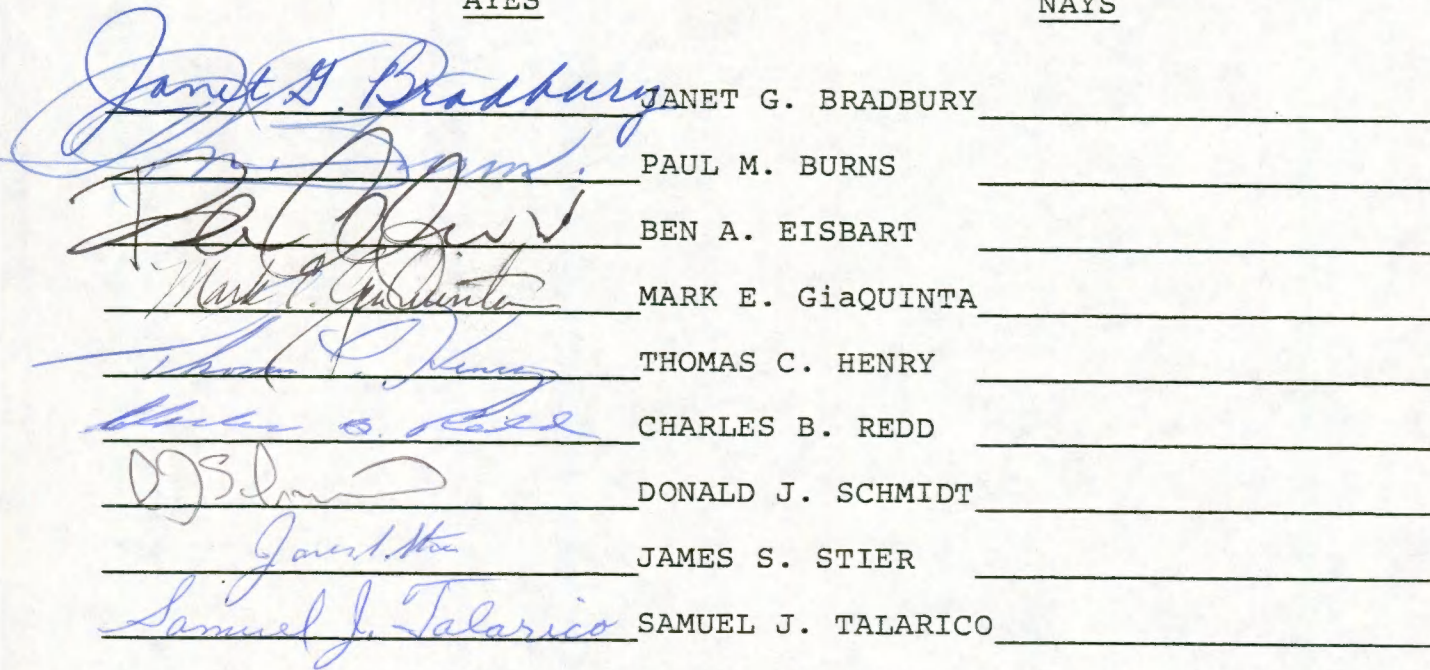 AYES NAYS
Janet G. Bradbury JANET G. BRADBURY
PAUL M. BURNS
BEN A. EISBART
Mark E. GiaQuinta MARK E. GiaQUINTA
Thomas C. Henry THOMAS C. HENRY
Charles B. Redd CHARLES B. REDD
DONALD J. SCHMIDT
James S. Stier JAMES S. STIER
Samuel J. Talarico SAMUEL J. TALARICO